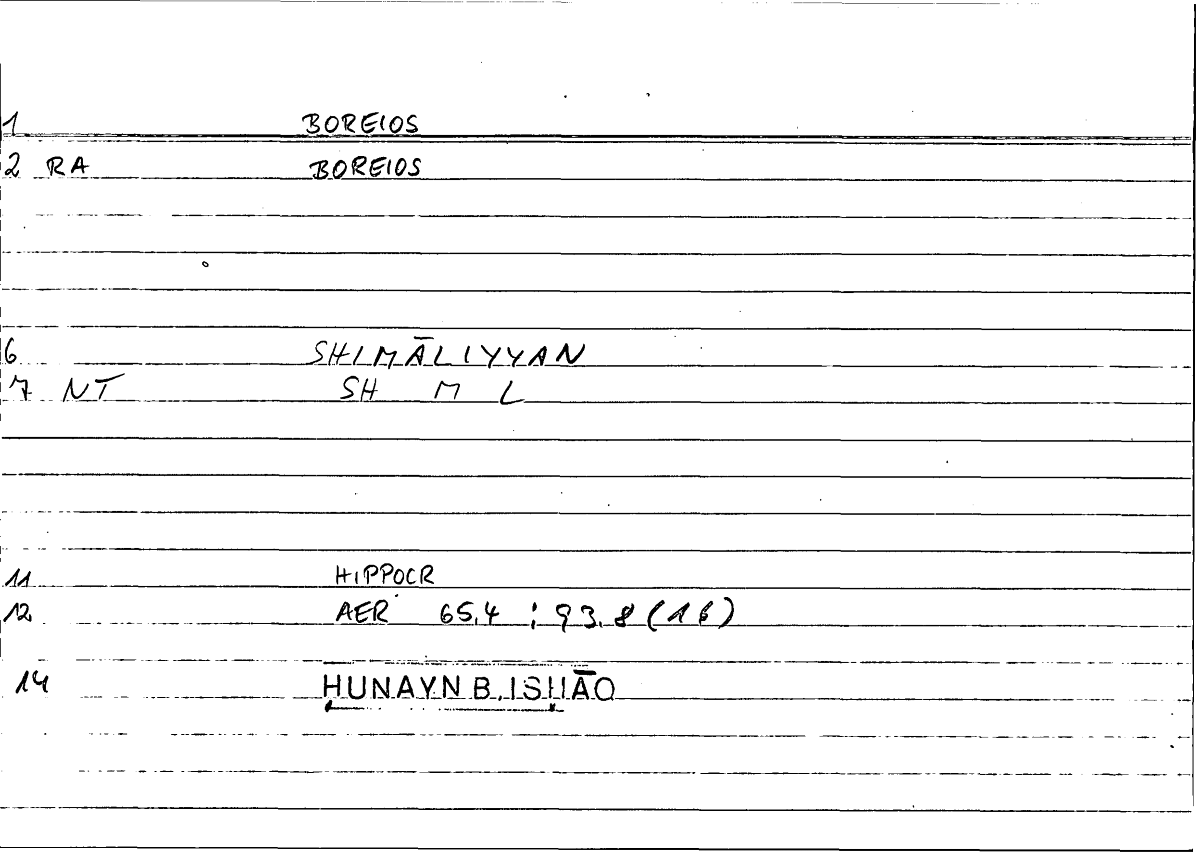 1 BOREIOS
2 RA BOREIOS
6 SHIMĀLIYYAN
7 NT SH M L
11 HIPPOCR
12 AER 65,4 ; 93.8 (16)
14 ḤUNAYN B. ISḤĀQ